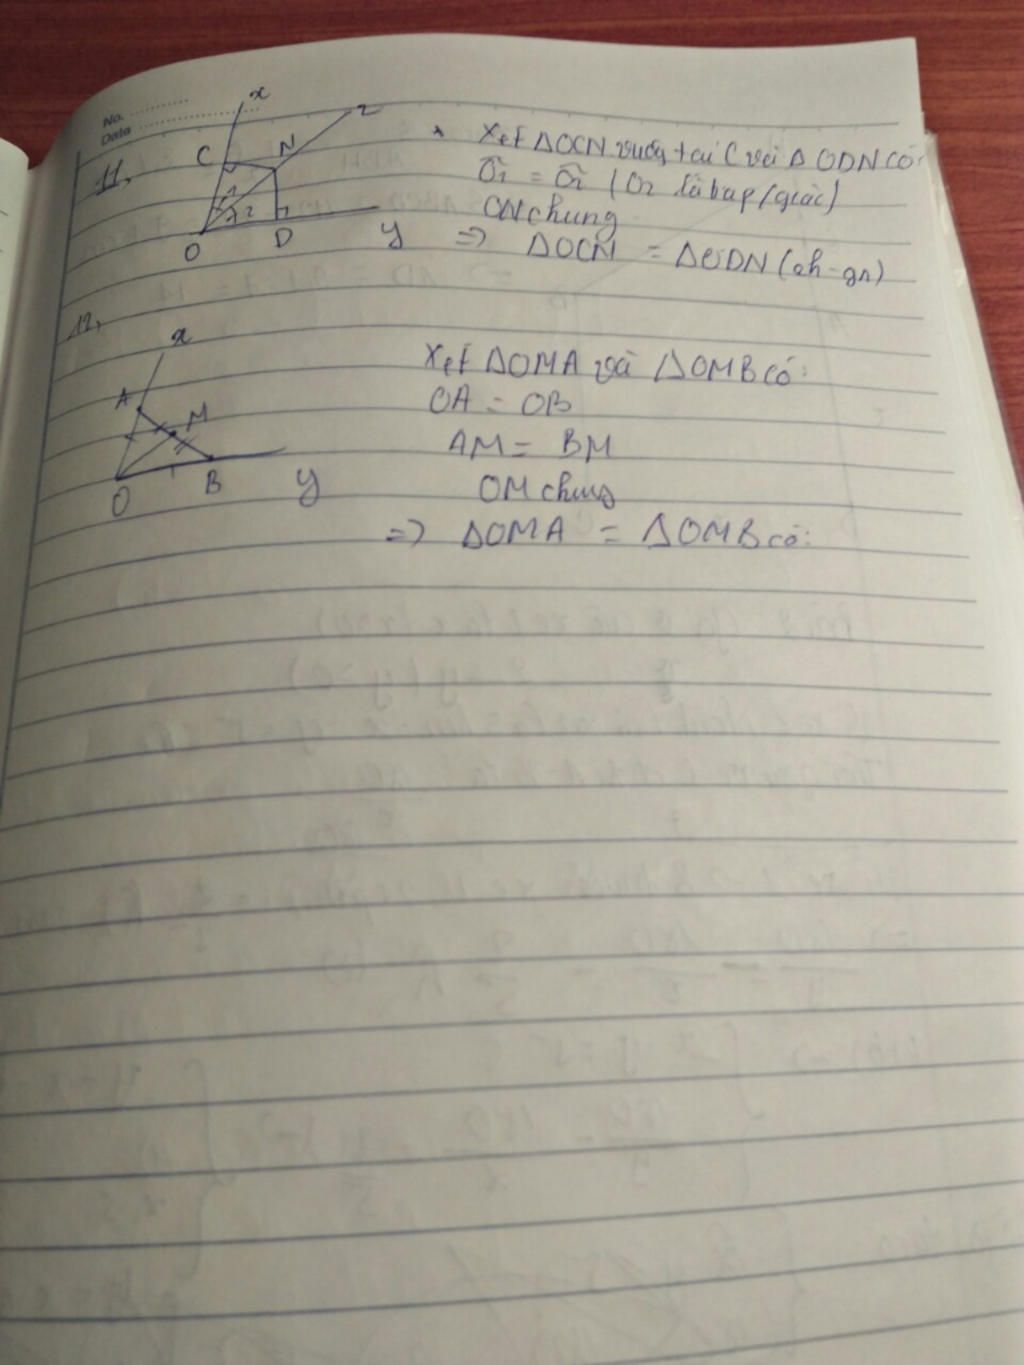 No.
Date
x
z
C
N
11,
1
2
O
D
y
* Xét ΔOCN vuông tại C và ΔODN có:
Ô1 = Ô2 (Oz là
ON chung
=> ΔOCN = ΔODN (ch-gn)
12,
x
A
M
O
B
y
Xét ΔOMA và ΔOMB có:
OA = OB
AM = BM
OM chung
=> ΔOMA = ΔOMB có: